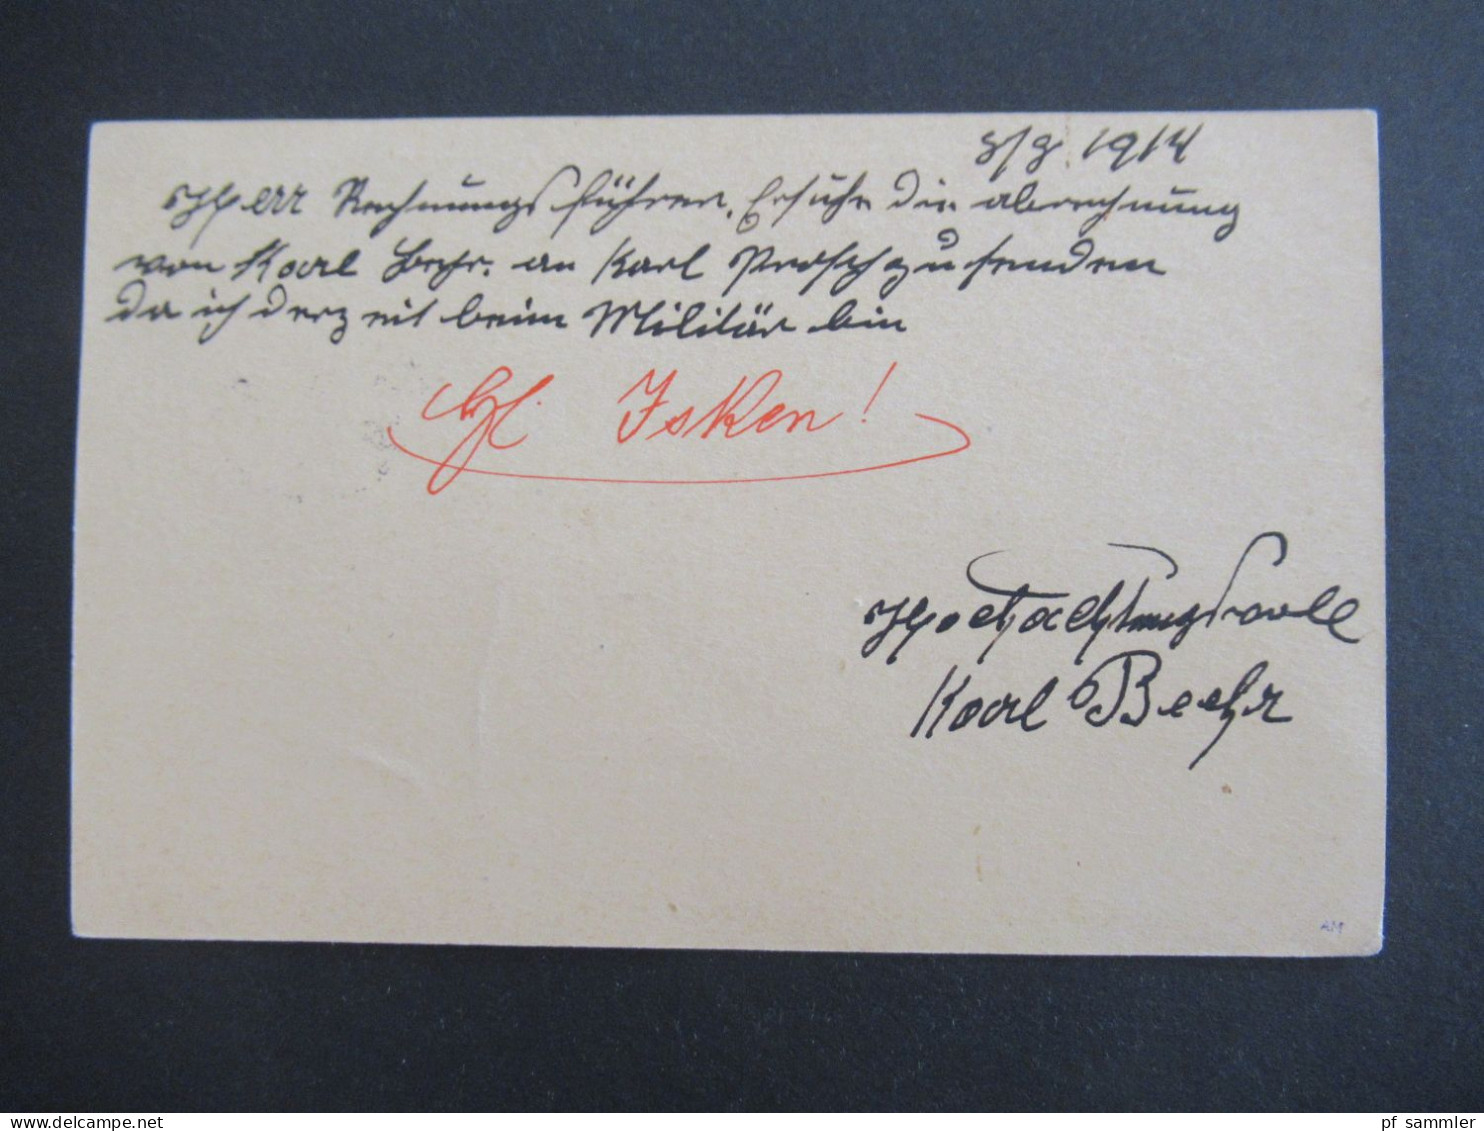 3/8. 1914
Herr Rechnungsführer. Ersuhe die abrechnung
von Karl Behr. an Karl zu senden
da ich derzeit beim Militär bin
Isken!
Hochachtungsvoll
Karl Beehr
AM
pf sammler
www.delcampe.net